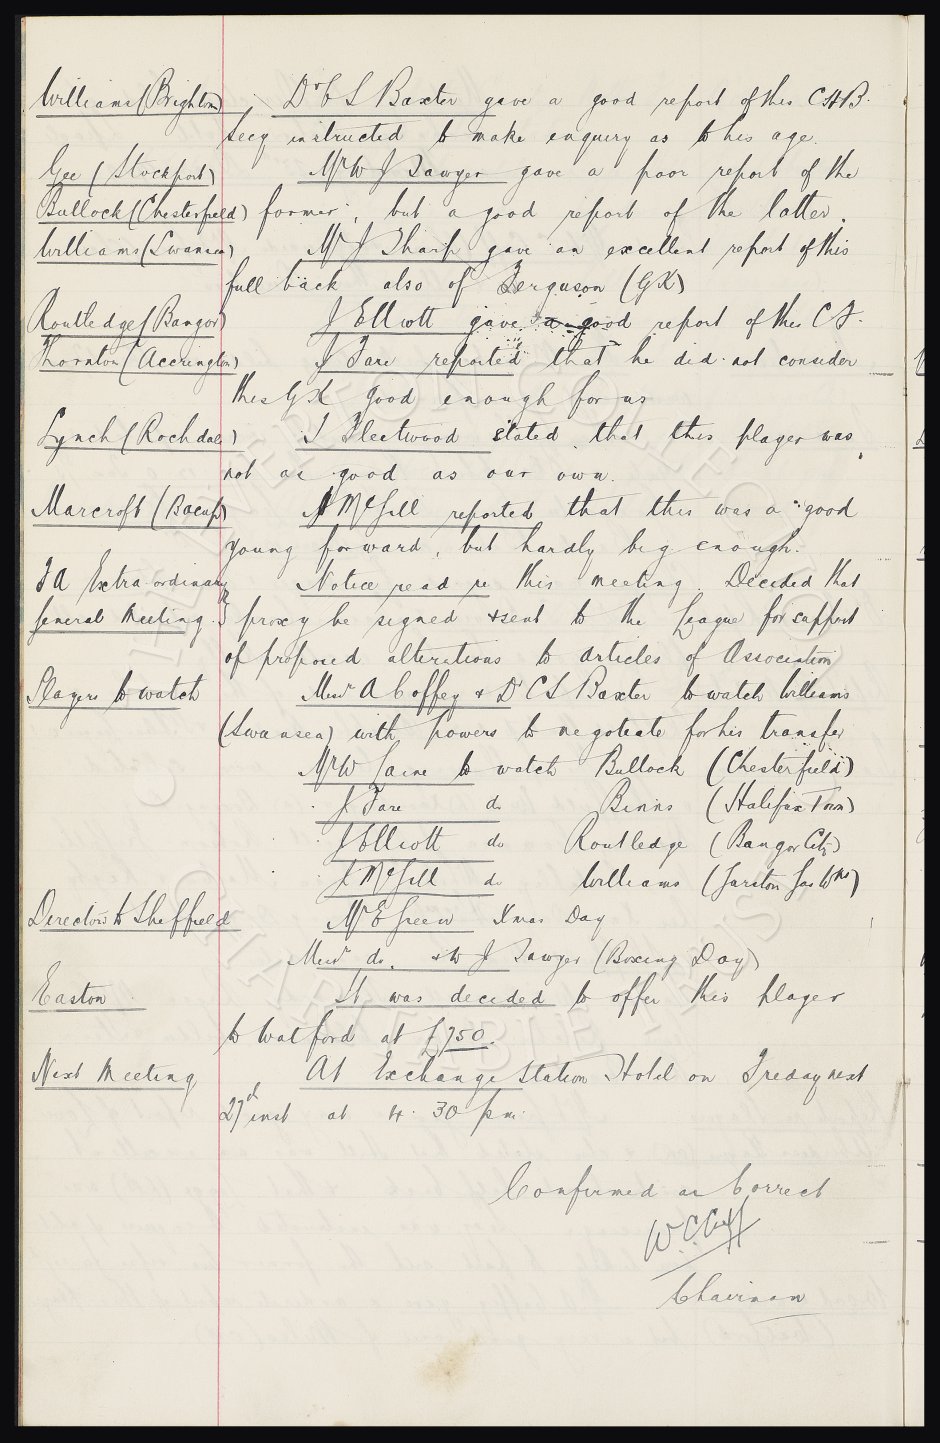 Williams (Brighton) Dr C S Baxter gave a good report of this C.H.B.
Secy instructed to make enquiry as to his age.
Gee (Stockport) Mr W J Sawyer gave a poor report of the
Bullock (Chesterfield) former, but a good report of the latter.
Williams (Swansea) Mr J Sharp gave an excellent report of this
full back also of Ferguson (GK)
Routledge (Bangor) J Elliott gave a good report of this C F.
Thornton (Accrington) J Fare reported that he did not consider
this GK good enough for us
Lynch (Rochdale) J Fleetwood stated that this player was
not as good as our own.
Marcroft (Bacup) J McGill reported that this was a good
young forward, but hardly big enough.
F A Extra-ordinary Notice read re this meeting. Decided that
General Meeting. proxy be signed & sent to the League for support
of proposed alterations to articles of Association
Players to watch Messrs A Coffey & Dr C S Baxter to watch Williams
(Swansea) with powers to negotiate for his transfer
Mr W Gaine to watch Bullock (Chesterfield)
J Fare do Binns (Halifax Town)
J Elliott do Routledge (Bangor City)
J McGill do Williams (Garston Gas Wks)
Directors to Sheffield Mr E Green Xmas Day
Messrs do. & W J Sawyer (Boxing Day)
Easton It was decided to offer this player
to Watford at £750.
Next Meeting At Exchange Station Hotel on Friday next
27th inst at 4.30 pm.
Confirmed as Correct
W.C. Cuff
Chairman